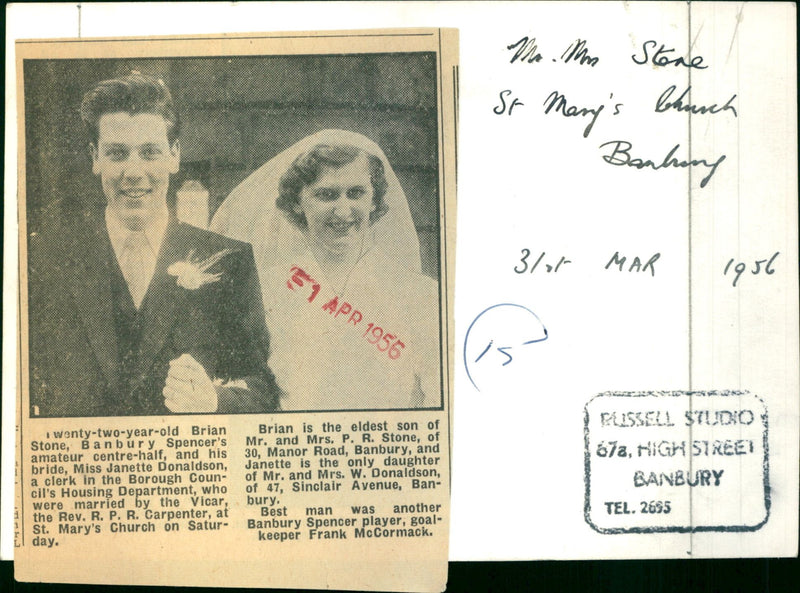 Mr. Mrs Stone
St Mary's Church
Banbury
31st MAR 1956
15
RUSSELL STUDIO
67a, HIGH STREET
BANBURY
TEL. 2695
1 APR 1956
Twenty-two-year-old Brian
Stone, Banbury Spencer's
amateur centre-half, and his
bride, Miss Janette Donaldson,
a clerk in the Borough Coun-
cil's Housing Department, who
were married by the Vicar,
the Rev. R. P. R. Carpenter, at
St. Mary's Church on Satur-
day.
Brian is the eldest son of
Mr. and Mrs. P. R. Stone, of
30, Manor Road, Banbury, and
Janette is the only daughter
of Mr. and Mrs. W. Donaldson,
of 47, Sinclair Avenue, Ban-
bury.
Best man was another
Banbury Spencer player, goal-
keeper Frank McCormack.